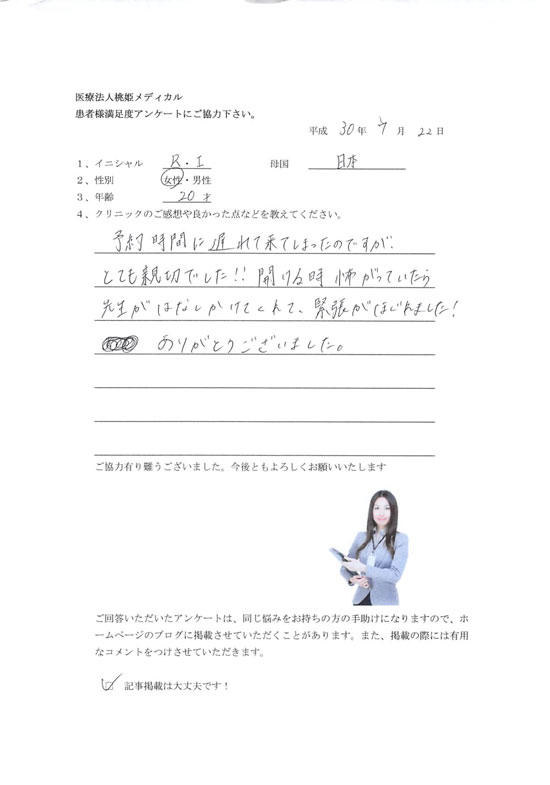 医療法人桃姫メディカル
患者様満足度アンケートにご協力下さい。
平成 30 年 7 月 22 日
1、イニシャル R・I 母国 日本
2、性別 女性・男性
3、年齢 20 才
4、クリニックのご感想や良かった点などを教えてください。
予約時間に遅れて来てしまったのですが、
とても親切でした!! 開ける時怖がっていたら
先生がはなしかけてくれて、緊張がほぐれました!
ありがとうございました。
ご協力有り難うございました。今後ともよろしくお願いいたします
ご回答いただいたアンケートは、同じ悩みをお持ちの方の手助けになりますので、ホ
ームページのブログに掲載させていただくことがあります。また、掲載の際には有用
なコメントをつけさせていただきます。
記事掲載は大丈夫です!